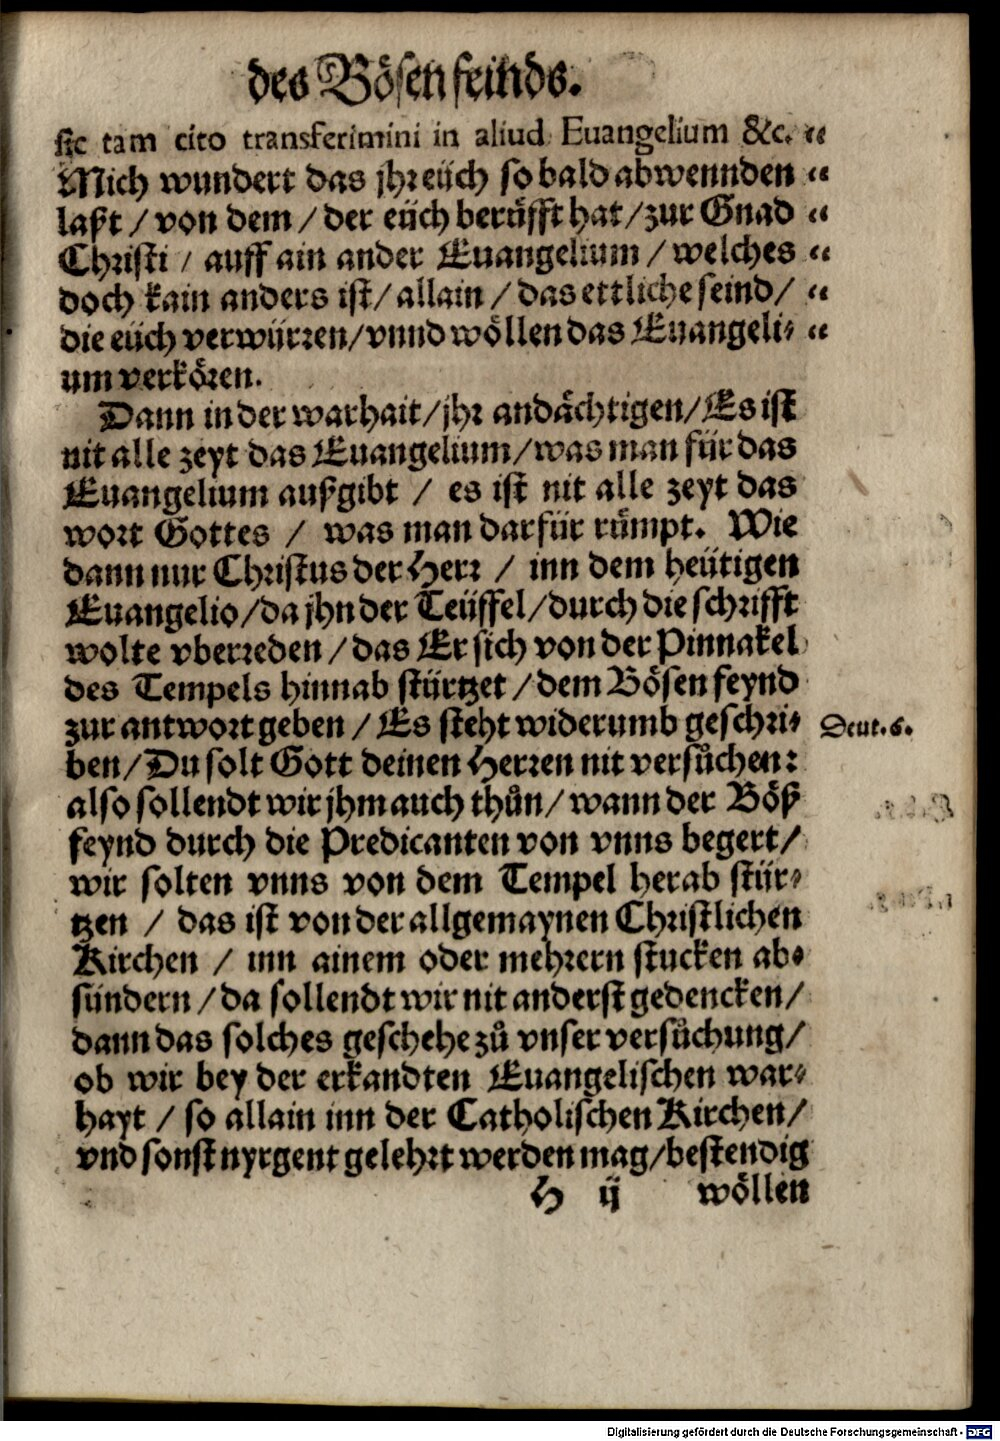 des Bösen feinds.
sic tam cito transferimini in aliud Euangelium &c. “
Mich wundert das jhr eüch so bald abwennden “
laßt / von dem / der eüch berüfft hat / zur Gnad “
Christi / auff ain ander Euangelium / welches “
doch kain anders ist / allain / das ettliche seind / “
die eüch verwürren / vnnd wöllen das Euangeli⸗ “
um verkören.
Dann in der warhait / jhr andächtigen / Es ist
nit alle zeyt das Euangelium / was man für das
Euangelium außgibt / es ist nit alle zeyt das
wort Gottes / was man darfür rümpt. Wie
dann nur Christus der Herr / inn dem heütigen
Euangelio / da jhn der Teüffel / durch die schrifft
wolte vberreden / das Er sich von der Pinnakel
des Tempels hinnab stürtzet / dem Bösen feynd
zur antwort geben / Es steht widerumb geschri⸗
Deut. 6.
ben / Du solt Gott deinen Herren nit versůchen:
also sollendt wir jhm auch thůn / wann der Böß
feynd durch die Predicanten von vnns begert /
wir solten vnns von dem Tempel herab stür⸗
tzen / das ist von der allgemaynen Christlichen
Kirchen / inn ainem oder mehrern stucken ab⸗
sündern / da sollendt wir nit anderst gedencken /
dann das solches geschehe zů vnser versůchung /
ob wir bey der erkandten Euangelischen war⸗
hayt / so allain inn der Catholischen Kirchen /
vnd sonst nyrgent gelehrt werden mag / bestendig
H ij wöllen
Digitalisierung gefördert durch die Deutsche Forschungsgemeinschaft - DFG